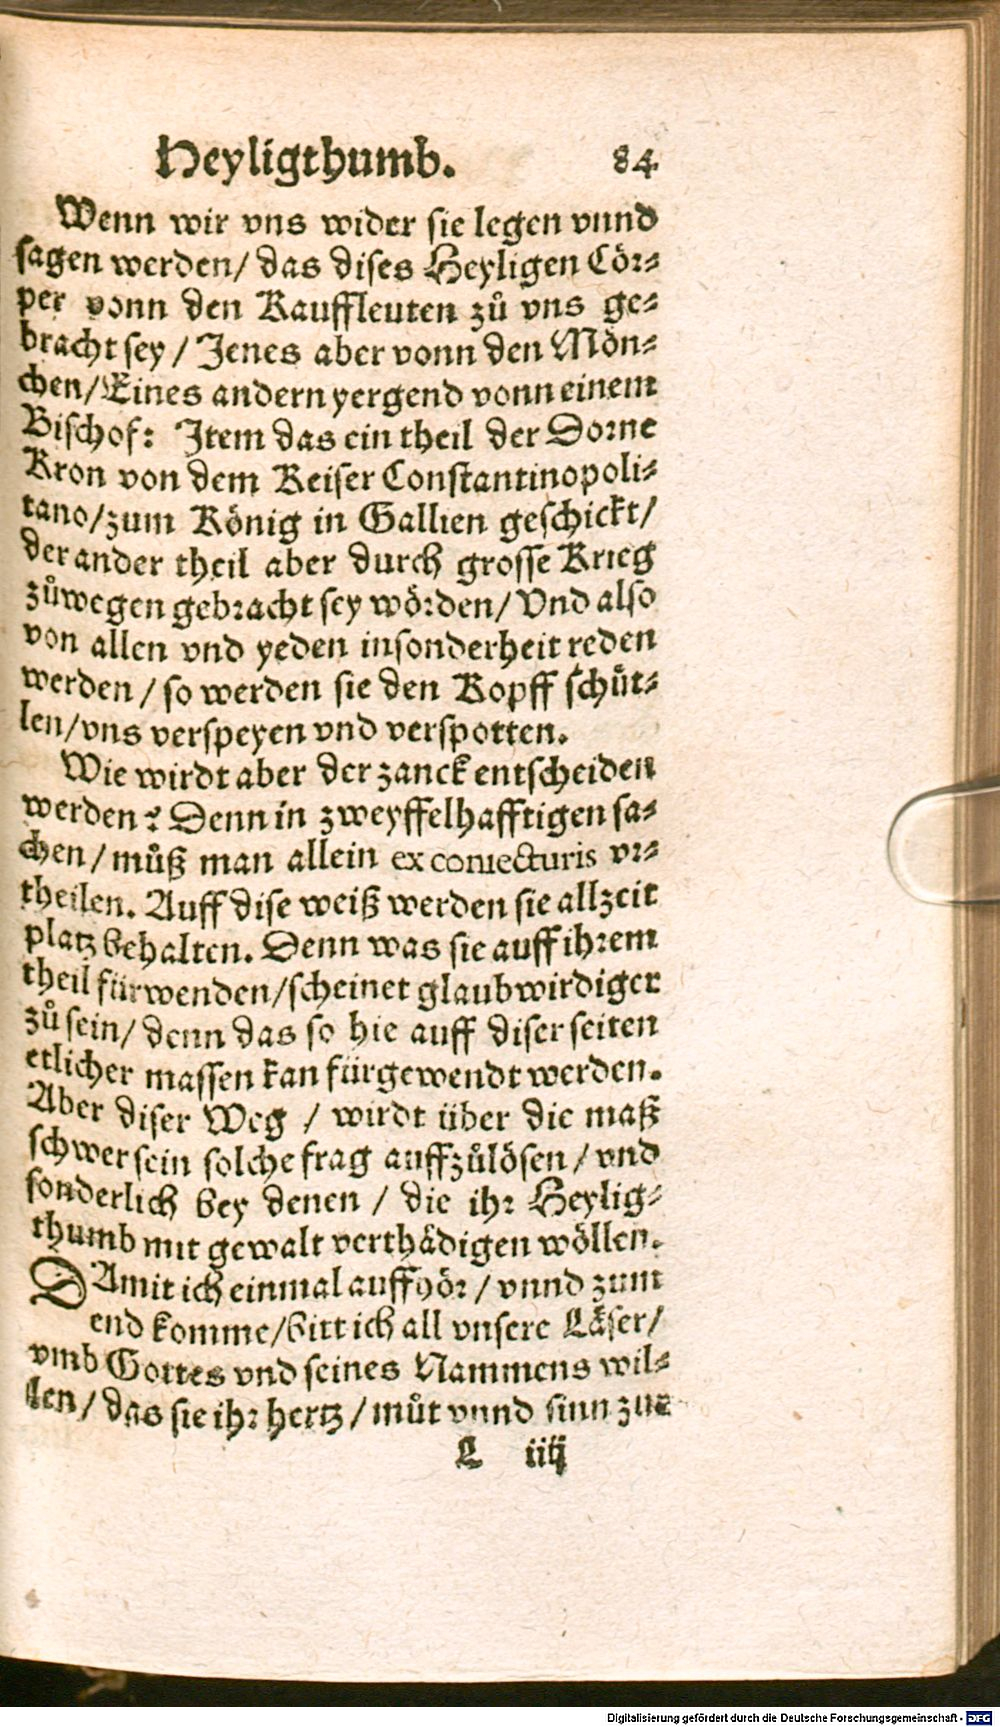 Heyligthumb. 84
Wenn wir vns wider sie legen vnnd
sagen werden/ das dises Heyligen Cör-
per vonn den Kauffleuten zů vns ge-
bracht sey / Jenes aber vonn den Mön-
chen/Eines andern yergend vonn einem
Bischof: Jtem das ein theil der Dorne
Kron von dem Keiser Constantinopoli-
tano/zum König in Gallien geschickt/
der ander theil aber durch grosse Krieg
zůwegen gebracht sey wörden/ Vnd also
von allen vnd yeden insonderheit reden
werden / so werden sie den Kopff schüt-
len/vns verspeyen vnd verspotten.
Wie wirdt aber der zanck entscheiden
werden? Denn in zweyffelhafftigen sa-
chen/ můß man allein ex coniecturis vr-
theilen. Auff dise weiß werden sie allzeit
platz behalten. Denn was sie auff ihrem
theil fürwenden/scheinet glaubwirdiger
zů sein/ denn das so hie auff diser seiten
etlicher massen kan fürgewendt werden.
Aber diser Weg / wirdt über die maß
schwer sein solche frag auffzůlösen / vnd
sonderlich bey denen / die ihr Heylig-
thumb mit gewalt verthådigen wöllen.
DAmit ich einmal auffhör / vnnd zum
end komme/bitt ich all vnsere Låser/
vmb Gottes vnd seines Nammens wil-
len/ das sie ihr hertz / můt vnnd sinn zur
L iiij
Digitalisierung gefördert durch die Deutsche Forschungsgemeinschaft - DFG